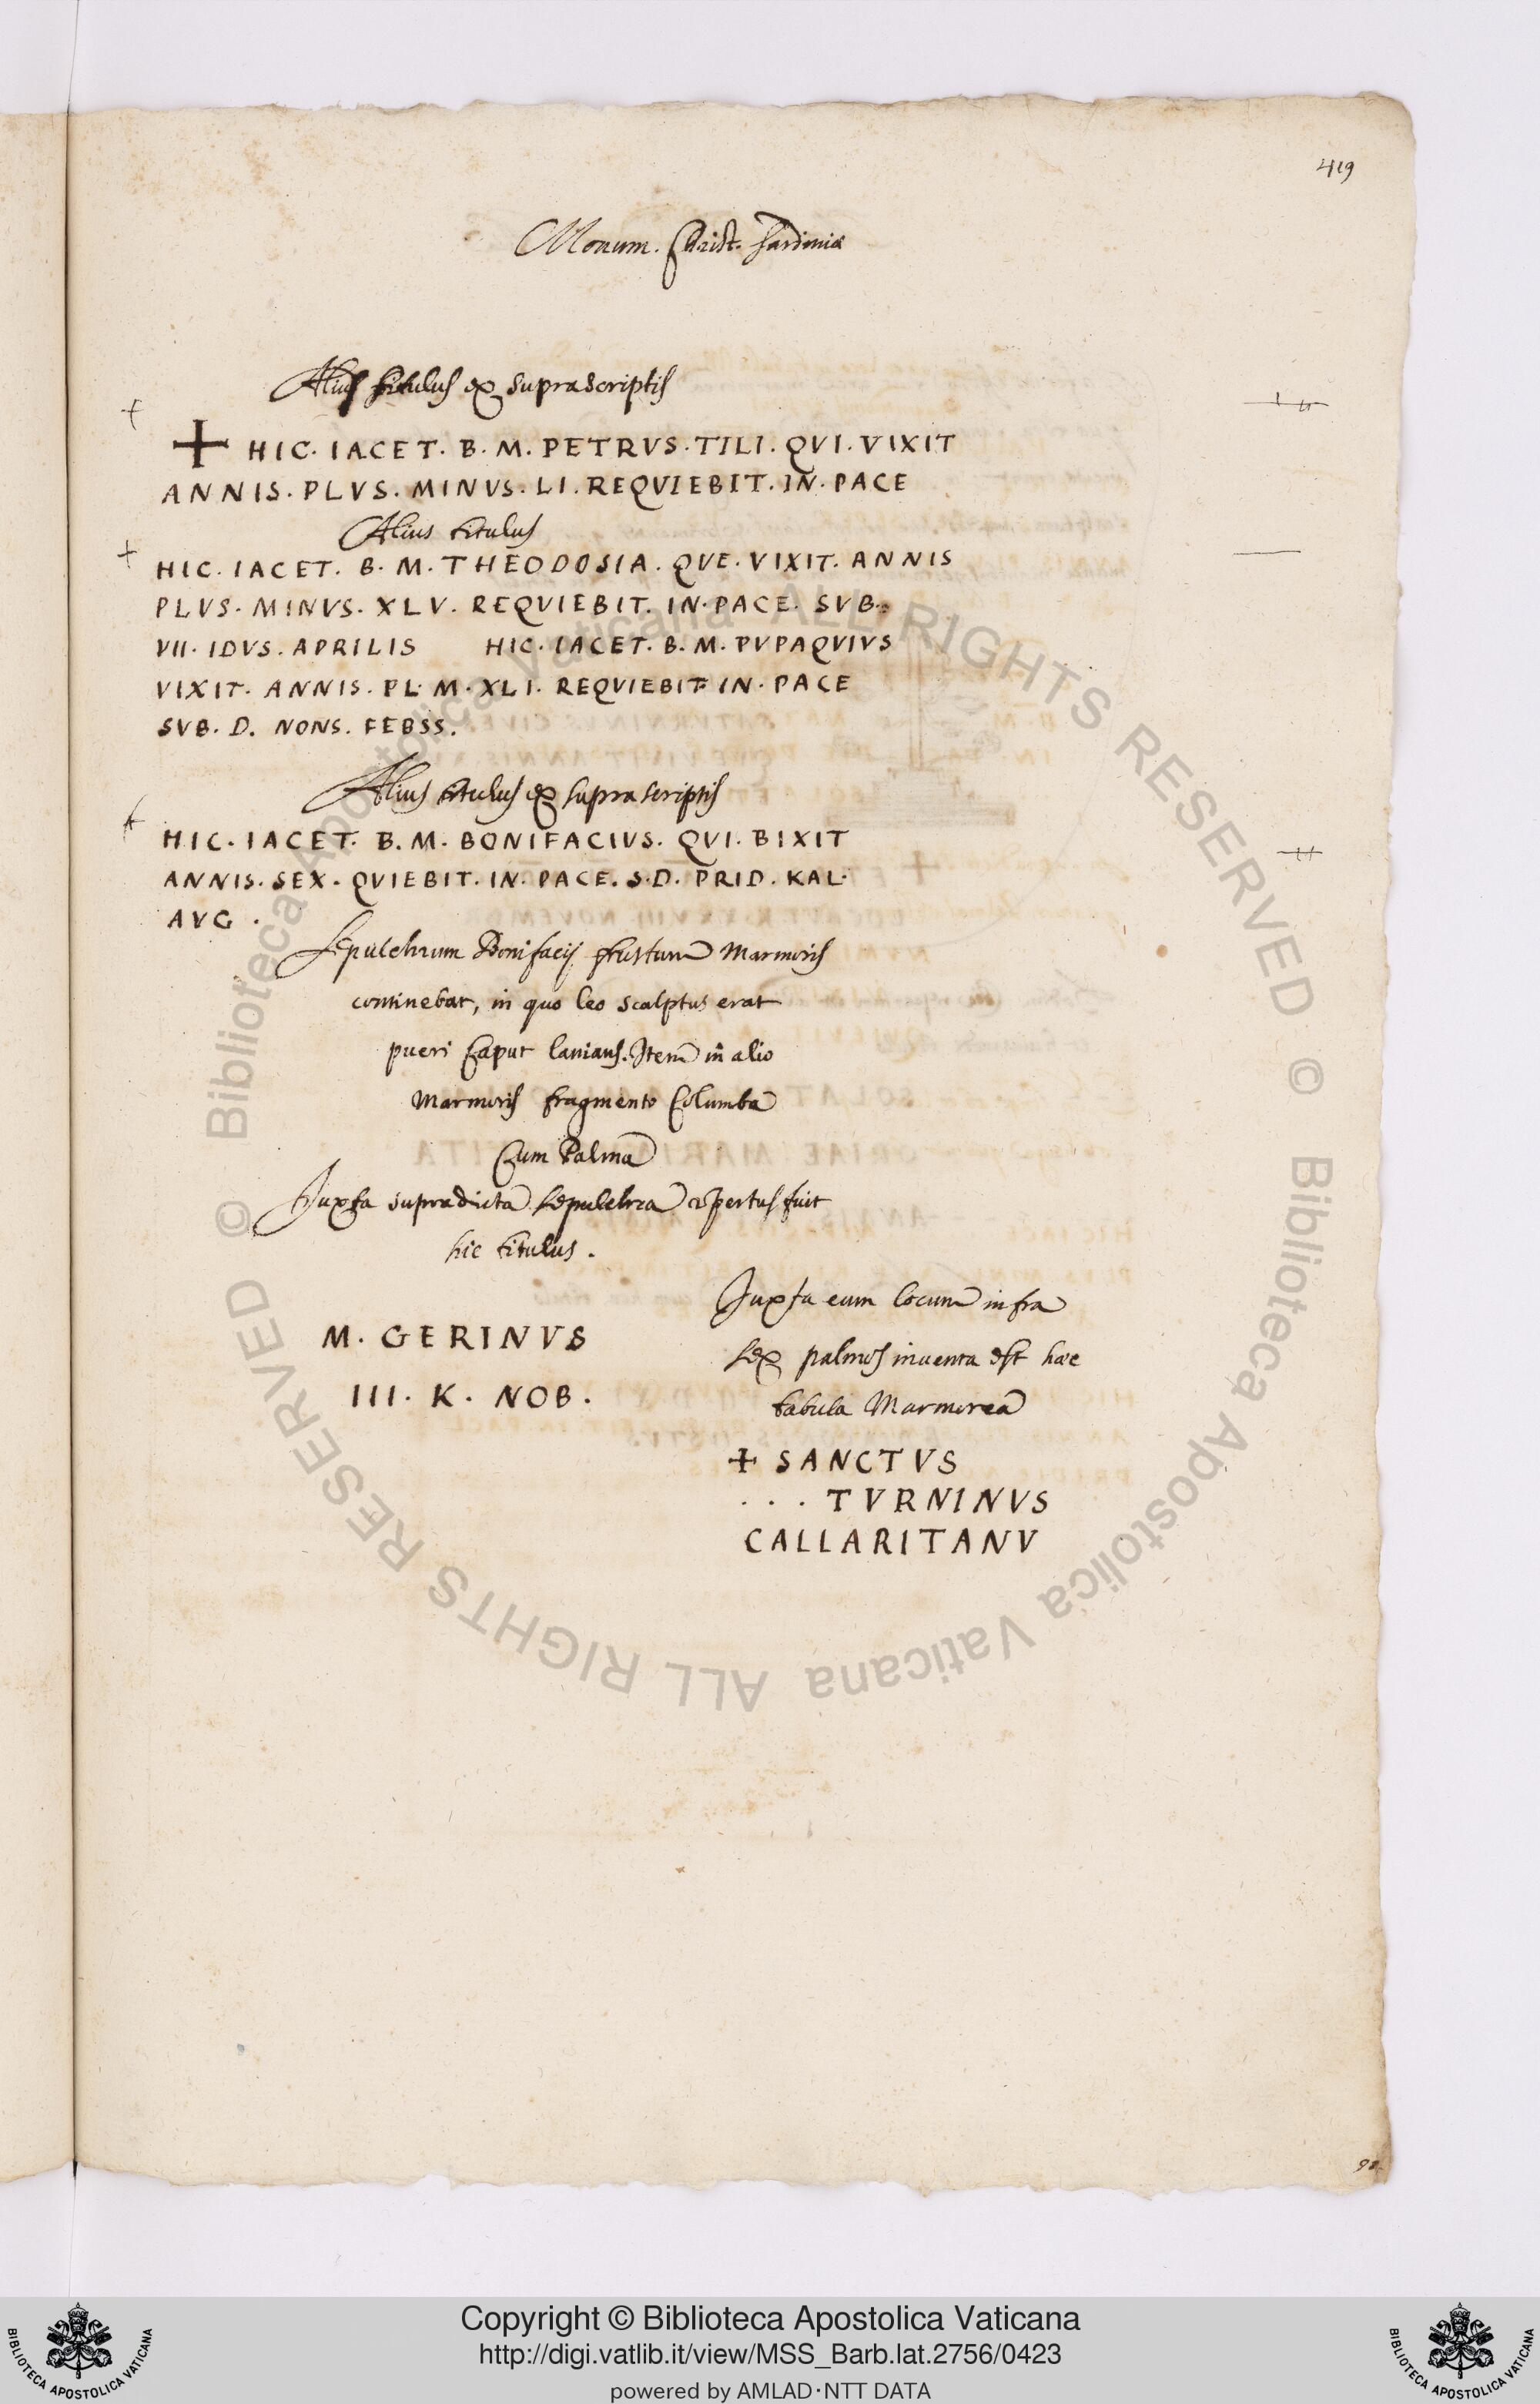 419
Monum. Christ. Sardiniæ
Alius titulus ex suprascriptis
+ HIC. IACET. B. M. PETRVS. TILI. QVI. VIXIT
ANNIS. PLVS. MINVS. LI. REQVIEBIT. IN. PACE
Alius titulus
HIC. IACET. B. M. THEODOSIA. QVE. VIXIT. ANNIS
PLVS. MINVS. XLV. REQVIEBIT. IN. PACE. SVB.
VII. IDVS. APRILIS HIC. IACET. B. M. PVPAQVIVS
VIXIT. ANNIS. PL. M. XLI. REQVIEBIT IN. PACE
SVB. D. NONS. FEBSS.
Alius titulus ex suprascriptis
HIC. IACET. B. M. BONIFACIVS. QVI. BIXIT
ANNIS. SEX. QVIEBIT. IN. PACE. S. D. PRID. KAL.
AVG.
Sepulchrum Bonifacij frustum Marmoris
continebat, in quo leo scalptus erat
pueri Caput lanians. Item in alio
Marmoris fragmento Columba
Cum Palma
Juxta supradicta sepulchra repertus fuit
hic titulus.
M. GERINVS
III. K. NOB.
Juxta eum locum infra
sex palmos inventa est hæc
tabula Marmorea
+ SANCTVS
. . . TVRNINVS
CALLARITANV
© Biblioteca Apostolica Vaticana ALL RIGHTS RESERVED © Biblioteca Apostolica Vaticana ALL RIGHTS RESERVED
BIBLIOTECA APOSTOLICA VATICANA
Copyright © Biblioteca Apostolica Vaticana
http://digi.vatlib.it/view/MSS_Barb.lat.2756/0423
powered by AMLAD·NTT DATA
BIBLIOTECA APOSTOLICA VATICANA